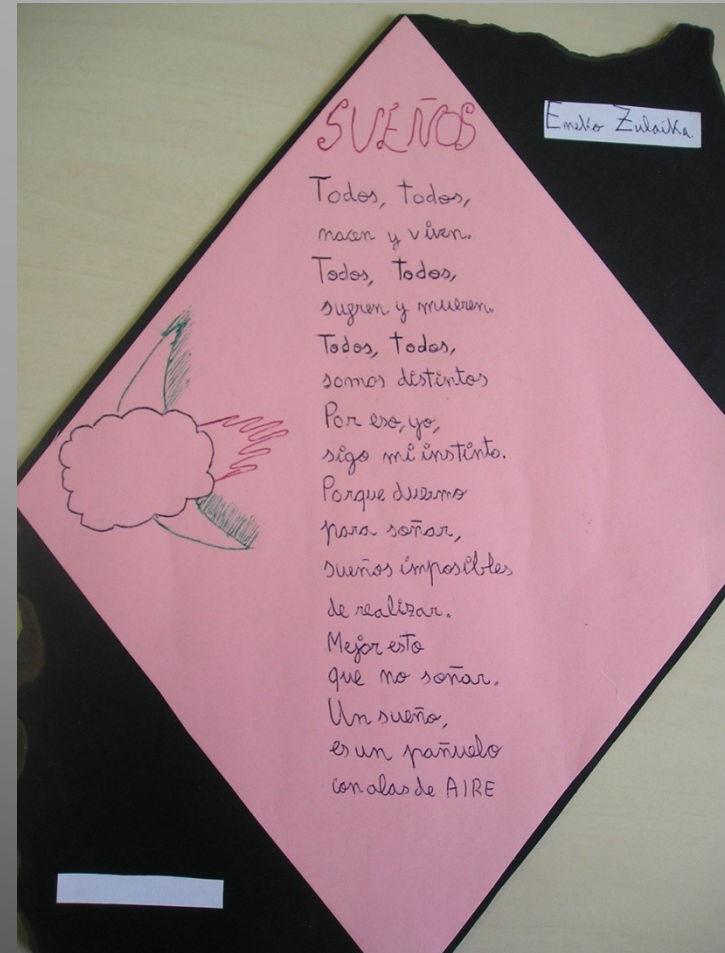 SUEÑOS
Eneko Zulaika
Todos, todos,
nacen y viven.
Todos, todos,
sufren y mueren.
Todos, todos,
somos distintos
Por eso, yo,
sigo mi instinto.
Porque duermo
para soñar,
sueños imposibles
de realizar.
Mejor esto
que no soñar.
Un sueño,
es un pañuelo
con alas de AIRE